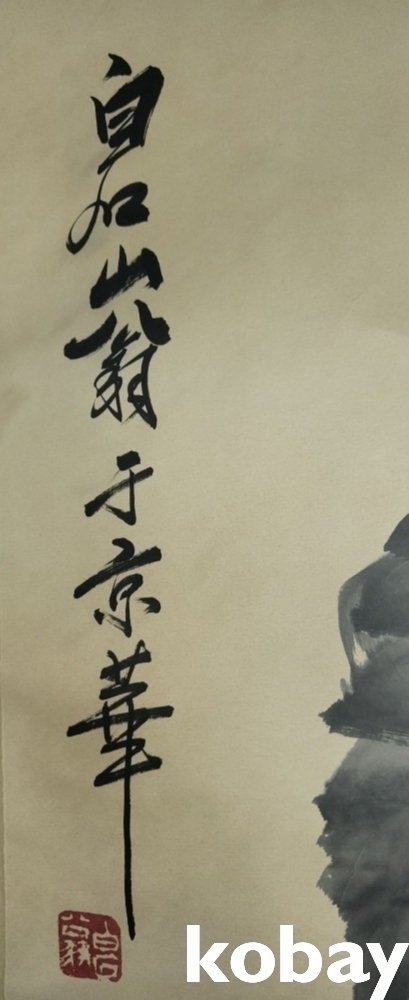 白石山翁于京華
白石翁
kobay